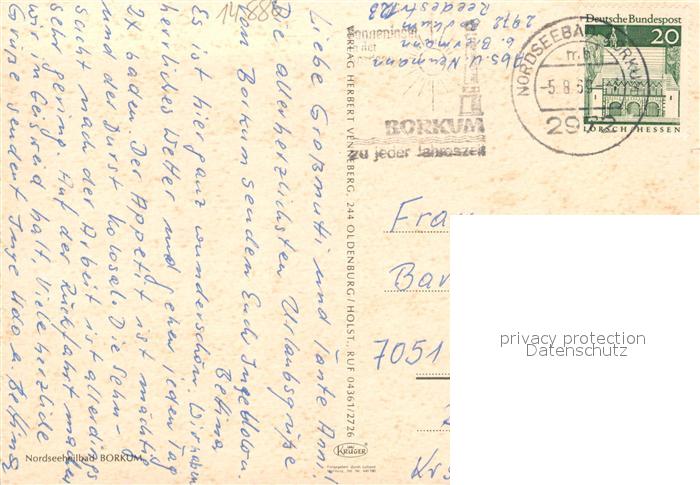 14886
Liebe Großmutti und Tante Anni!
Die allerherzlichsten Urlaubsgrüße
von Borkum senden Euch Inge Udo u.
Bettina
Es ist hier ganz wunderschön. Wir haben
herrliches Wetter und gehen jeden Tag
2x baden. Der Appetit ist mächtig
und der Durst kolosal. Die Sehn-
sucht nach der Arbeit ist allerdings
sehr gering. Auf der Rückfahrt machen
wir in Geisweid halt. Viele herzliche
Grüße senden Inge Udo u. Bettina
Nordseeheilbad BORKUM
VERLAG HERBERT VENNEBERG, 244 OLDENBURG/HOLST., RUF 04361/2726
KRÜGER
Abs. U. Neumann
b.
2972 Borkum
Reedestr.
BORKUM
zu jeder Jahreszeit
NORDSEEBAD BORKUM
-5.8.
2972
Deutsche Bundespost
20
LORSCH/HESSEN
Frau
7051
privacy protection
Datenschutz